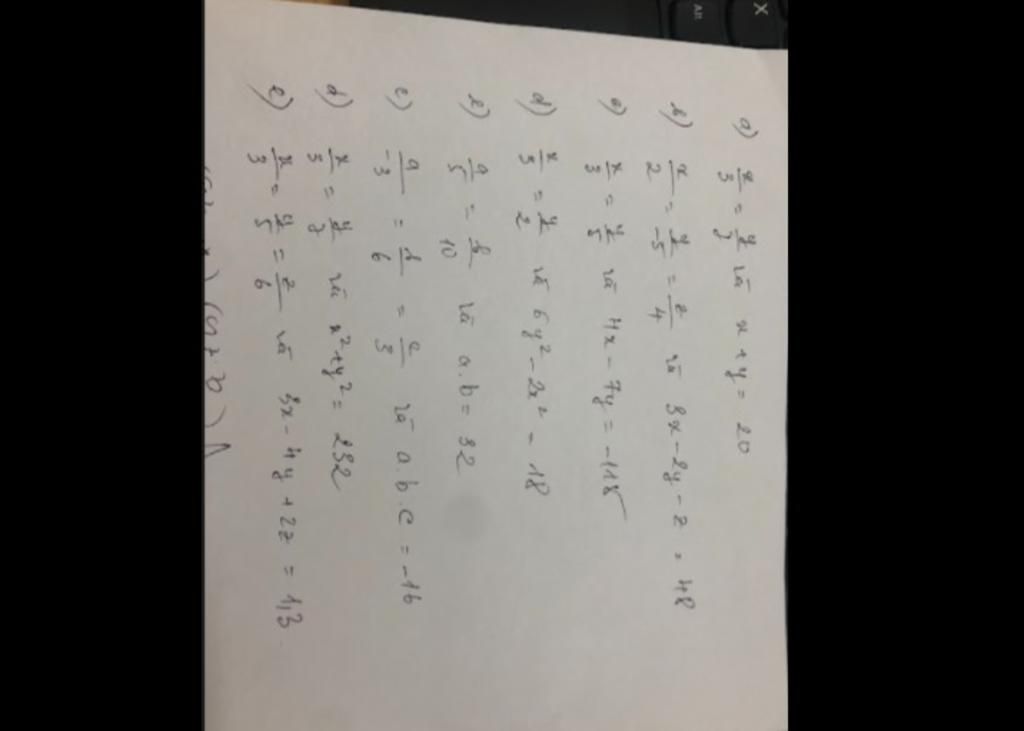 a) x/3 = y/7 và x + y = 20
b) x/2 = y/-5 = z/4 và 3x - 2y - z = 48
c) x/3 = y/5 và 4x - 7y = -115
d) x/3 = y/2 và 6y² - 2x² = 18
b) a/5 = b/10 và a.b = 32
c) a/-3 = b/6 = c/3 và a.b.c = -16
d) x/3 = y/7 và x² + y² = 232
e) x/3 = y/5 = z/6 và 3x - 4y + 2z = 1,3
X
Alt